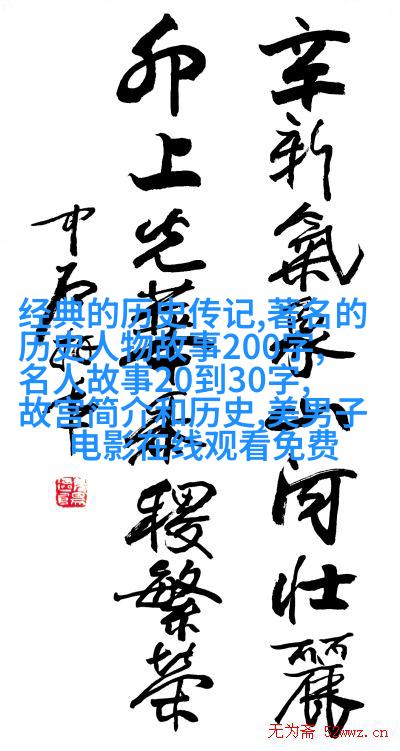 辛新氣象山河壯麗
卯上光華稷繁榮
中石
经典的历史传记,著名的
历史人物故事200字,
名人故事20到30字,
故宫简介和历史,美男子
电影在线观看免费
无为斋 52wwz.cn